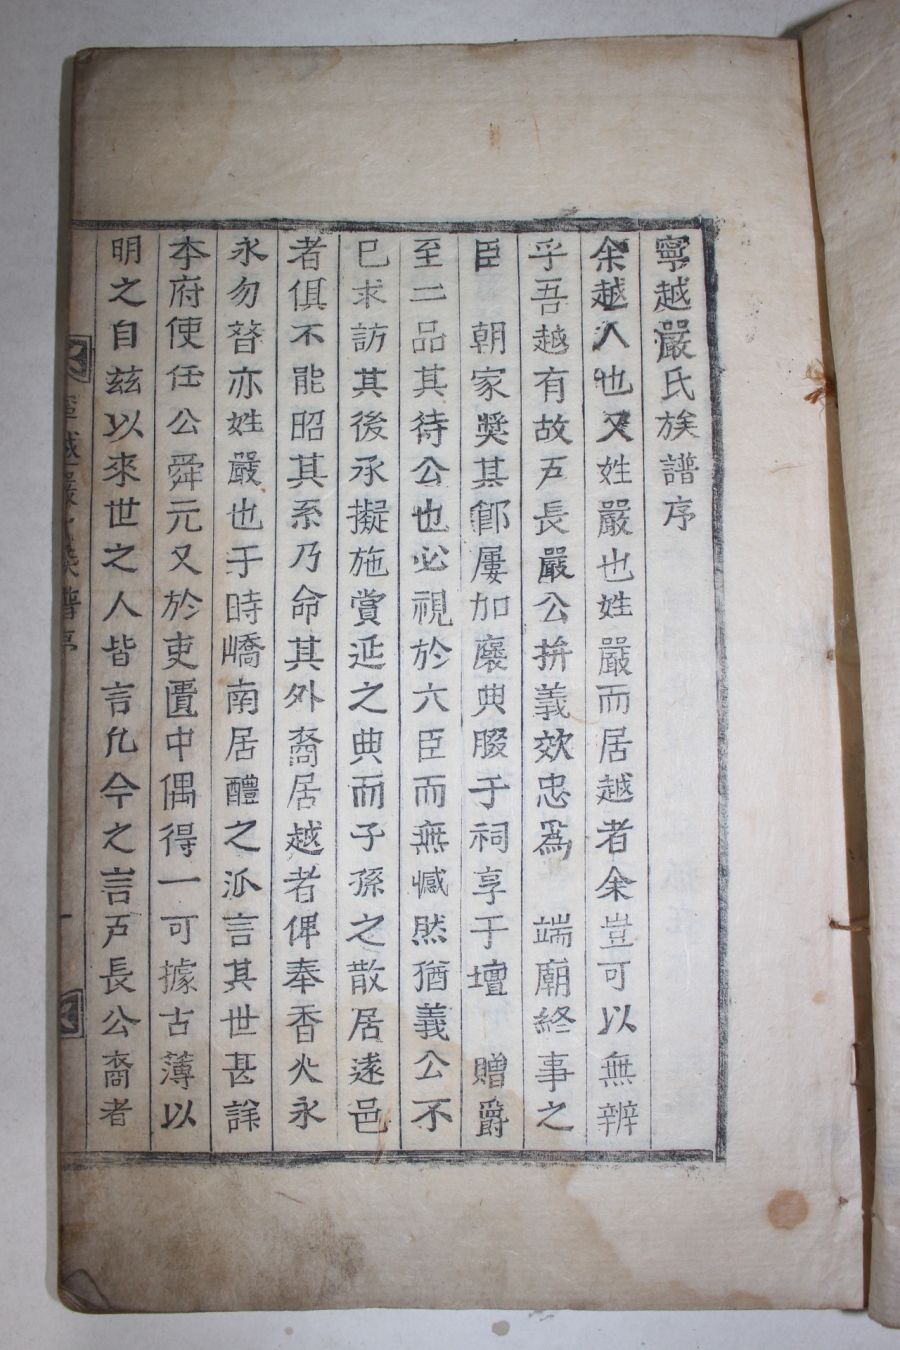 寧越嚴氏族譜序
余越人也又姓嚴也姓嚴而居越者余豈可以無辨
乎吾越有故戶長嚴公拚義效忠爲 端廟終事之
臣 朝家奬其節屢加褒典腏于祠享于壇 贈爵
至二品其待公也必視於六臣而無憾然猶義公不
已求訪其後承擬施賞延之典而子孫之散居遠邑
者俱不能昭其系乃命其外裔居越者俾奉香火永
永勿替亦姓嚴也于時嶠南居醴之派言其世甚詳
本府使任公舜元又於吏匱中偶得一可據古薄以
明之自茲以來世之人皆言凡今之言戶長公裔者
寧越嚴氏族譜序
一